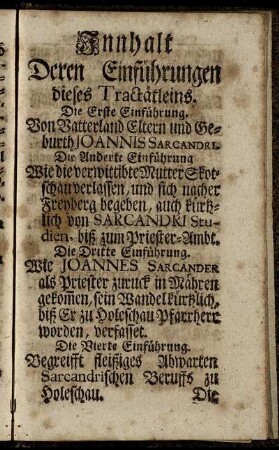 Innhalt
Deren Einführungen
dieses Tractätleins.
Die Erste Einführung.
Von Vatterland Eltern und Ge-
burth JOANNIS SARCANDRI.
Die Anderte Einführung
Wie die verwittibte Mutter Skot-
schau verlassen, und sich nacher
Freyberg begeben, auch kürtz-
lich von SARCANDRI Stu-
dien, biß zum Priester-Ambt.
Die Dritte Einführung.
Wie JOANNES SARCANDER
als Priester zuruck in Mähren
gekomen, sein Wandel kürtzlich,
biß Er zu Holeschau Pfarrherr
worden, verfasset.
Die Vierte Einführung.
Begreifft fleißiges Abwarten
Sarcandrischen Beruffs zu
Holeschau. Die